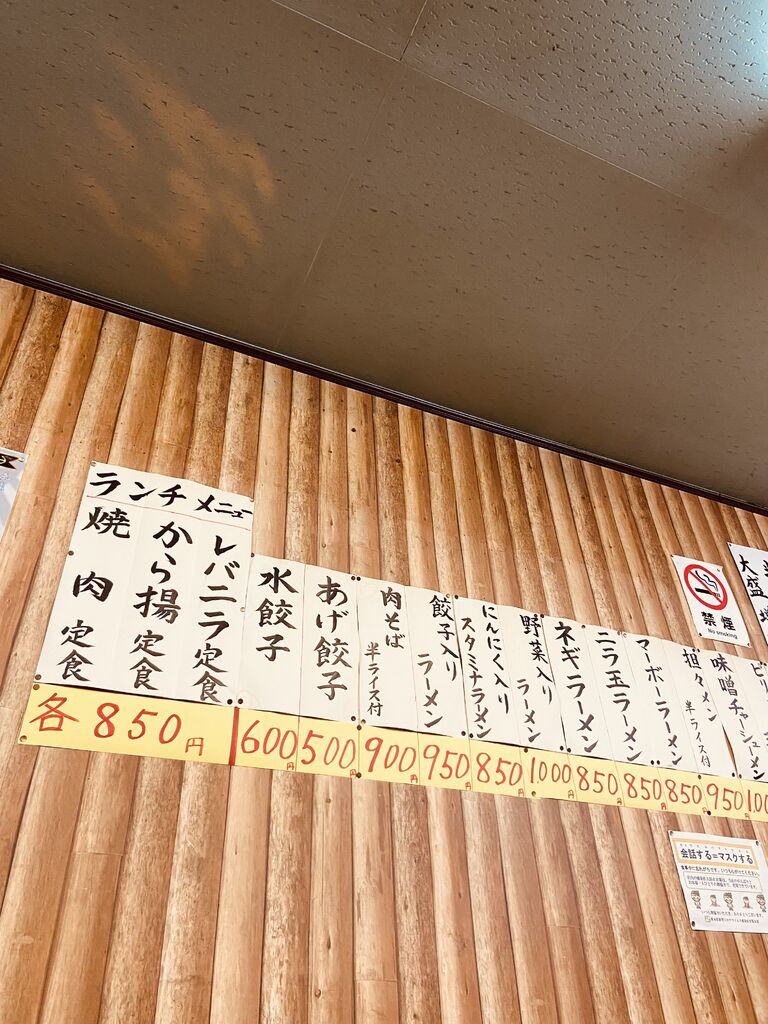 ランチメニュー
レバニラ定食
から揚定食
焼肉定食
各850円
水餃子
600円
あげ餃子
500円
肉そば
半ライス付
900円
餃子入り
ラーメン
950円
にんにく入り
スタミナラーメン
850円
野菜入り
ラーメン
1000円
ネギラーメン
850円
ニラ玉ラーメン
850円
マーボーラーメン
850円
担々メン
半ライス付
950
味噌チャーシューメン
禁煙
No smoking
大盛
会話する=マスクする